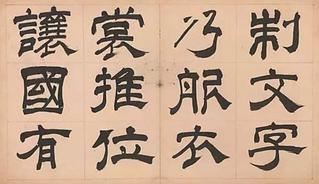 制文字
乃服衣
裳推位
讓國有